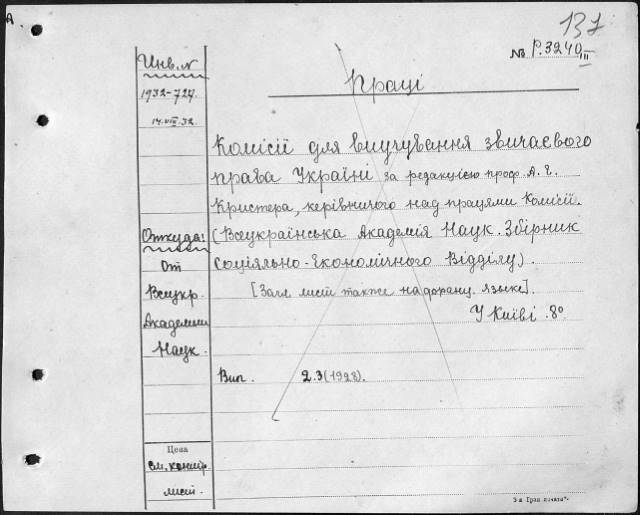 А
137
№ Р.3240 III
Инв. №
1932-727.
14.VIII.32.
Праці
Комісії для виучування звичаєвого
права України за редакцією проф. А. Є.
Кристера, керівничого над працями Комісії.
(Всеукраїнська Академія Наук. Збірник
Соціяльно-Економічного Відділу).
[Загл. лист также на франц. языке].
У Київі. 8º
Откуда:
От
Всеукр.
Академии
Наук.
Вип. 2.3 (1928).
Цена
см.
лист.
"3-я Грав. печати".